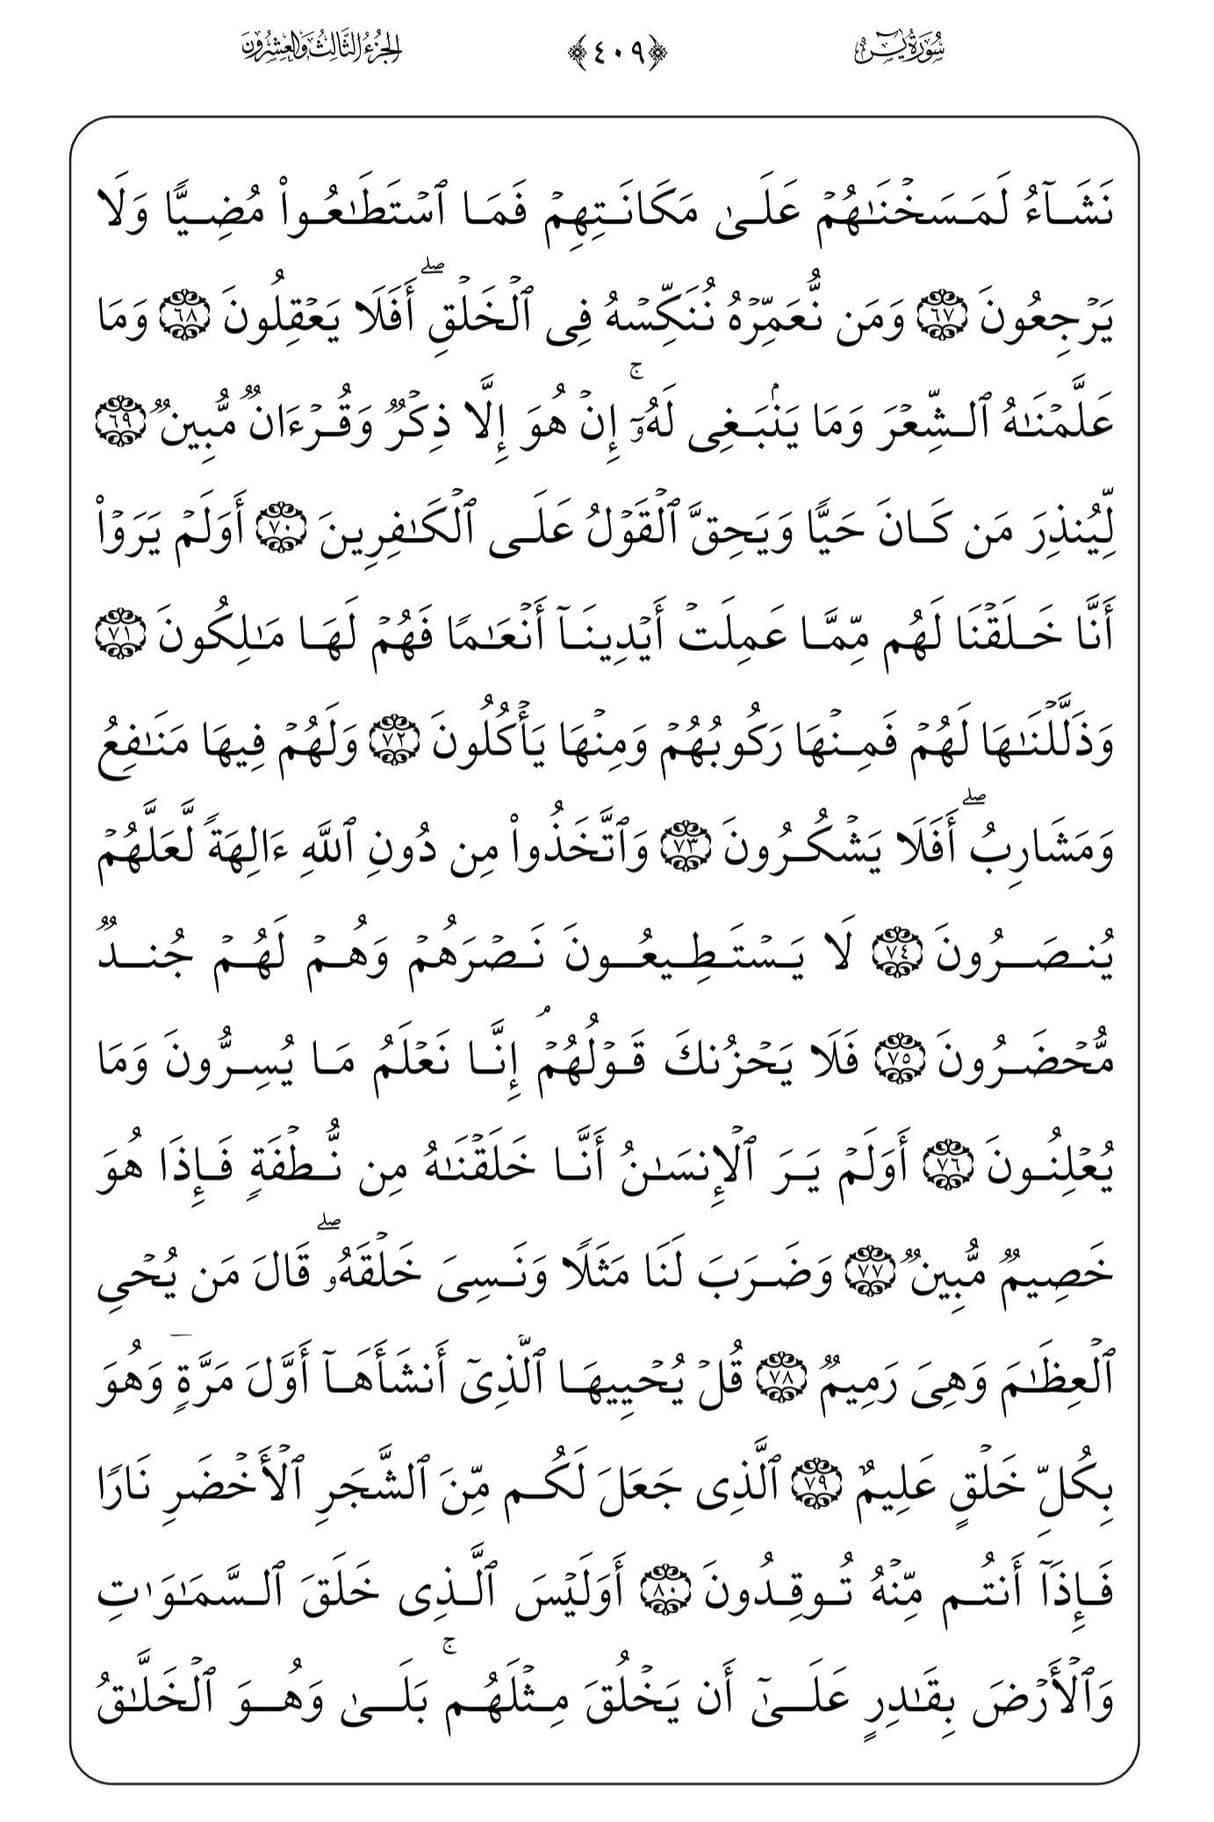 سُورَةُ يسٓ ﴿٤٠٩﴾ الجُزْءُ الثَّالِثُ وَالعِشْرُونَ
نَشَآءُ لَمَسَخۡنَٰهُمۡ عَلَىٰ مَكَانَتِهِمۡ فَمَا ٱسۡتَطَٰعُواْ مُضِيًّا وَلَا
يَرۡجِعُونَ ٦٧ وَمَن نُّعَمِّرۡهُ نُنَكِّسۡهُ فِي ٱلۡخَلۡقِۖ أَفَلَا يَعۡقِلُونَ ٦٨ وَمَا
عَلَّمۡنَٰهُ ٱلشِّعۡرَ وَمَا يَنۢبَغِي لَهُۥٓۚ إِنۡ هُوَ إِلَّا ذِكۡرٞ وَقُرۡءَانٞ مُّبِينٞ ٦٩
لِّيُنذِرَ مَن كَانَ حَيّٗا وَيَحِقَّ ٱلۡقَوۡلُ عَلَى ٱلۡكَٰفِرِينَ ٧٠ أَوَلَمۡ يَرَوۡاْ
أَنَّا خَلَقۡنَا لَهُم مِّمَّا عَمِلَتۡ أَيۡدِينَآ أَنۡعَٰمٗا فَهُمۡ لَهَا مَٰلِكُونَ ٧١
وَذَلَّلۡنَٰهَا لَهُمۡ فَمِنۡهَا رَكُوبُهُمۡ وَمِنۡهَا يَأۡكُلُونَ ٧٢ وَلَهُمۡ فِيهَا مَنَٰفِعُ
وَمَشَارِبُۖ أَفَلَا يَشۡكُرُونَ ٧٣ وَٱتَّخَذُواْ مِن دُونِ ٱللَّهِ ءَالِهَةٗ لَّعَلَّهُمۡ
يُنصَرُونَ ٧٤ لَا يَسۡتَطِيعُونَ نَصۡرَهُمۡ وَهُمۡ لَهُمۡ جُندٞ
مُّحۡضَرُونَ ٧٥ فَلَا يَحۡزُنكَ قَوۡلُهُمۡۘ إِنَّا نَعۡلَمُ مَا يُسِرُّونَ وَمَا
يُعۡلِنُونَ ٧٦ أَوَلَمۡ يَرَ ٱلۡإِنسَٰنُ أَنَّا خَلَقۡنَٰهُ مِن نُّطۡفَةٖ فَإِذَا هُوَ
خَصِيمٞ مُّبِينٞ ٧٧ وَضَرَبَ لَنَا مَثَلٗا وَنَسِيَ خَلۡقَهُۥۖ قَالَ مَن يُحۡيِ
ٱلۡعِظَٰمَ وَهِيَ رَمِيمٞ ٧٨ قُلۡ يُحۡيِيهَا ٱلَّذِيٓ أَنشَأَهَآ أَوَّلَ مَرَّةٖۖ وَهُوَ
بِكُلِّ خَلۡقٍ عَلِيمٌ ٧٩ ٱلَّذِي جَعَلَ لَكُم مِّنَ ٱلشَّجَرِ ٱلۡأَخۡضَرِ نَارٗا
فَإِذَآ أَنتُم مِّنۡهُ تُوقِدُونَ ٨٠ أَوَلَيۡسَ ٱلَّذِي خَلَقَ ٱلسَّمَٰوَٰتِ
وَٱلۡأَرۡضَ بِقَٰدِرٍ عَلَىٰٓ أَن يَخۡلُقَ مِثۡلَهُمۚ بَلَىٰ وَهُوَ ٱلۡخَلَّٰقُ